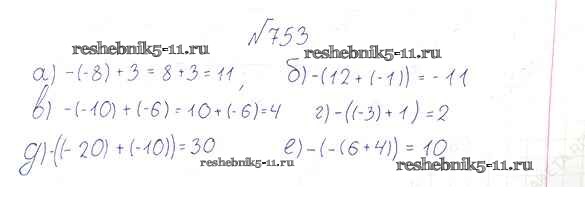 №753
reshebnik5-11.ru reshebnik5-11.ru
а) -(-8)+3=8+3=11, б) -(12+(-1))=-11
в) -(-10)+(-6)=10+(-6)=4 г) -((-3)+1)=2
д) -((-20)+(-10))=30 е) -(-(6+4))=10
reshebnik5-11.ru reshebnik5-11.ru